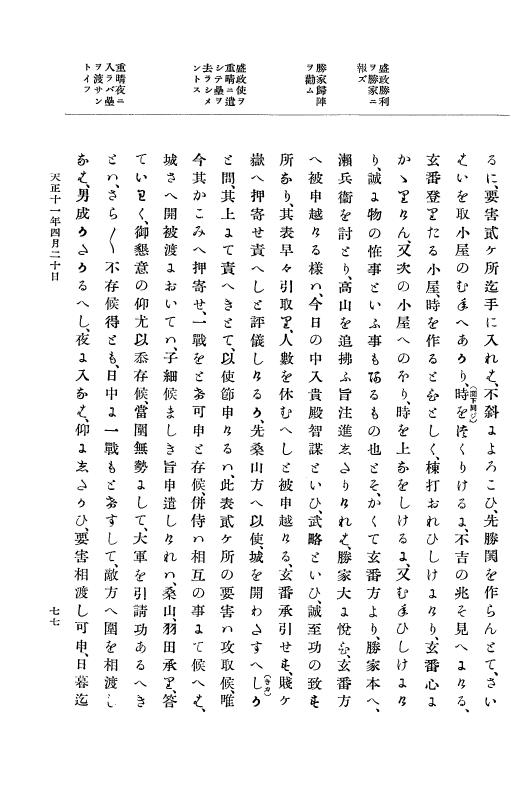 盛政勝利
ヲ勝家ニ
報ズ
勝家歸陣
ヲ勸ム
盛政使ヲ
重晴ニ遣
シテ壘ヲ
去ラシメ
ントス
重晴夜ニ
入ラバ壘
ヲ渡サン
トイフ
るに、要害貳ヶ所迄手に入れは、不斜によろこひ、先勝鬨を作らんとて、さい
はいを取小屋のむねへあかり、時をつくりけるに、不吉の兆そ見へにける、
(鬨下同ジ)
玄番登りたる小屋、時を作るとひとしく、棟打おれひしけにけり、玄番心に
かゝりけん、又次の小屋へのほり、時を上なをしけるに、又むねひしけにけ
り、誠に物の恠事といふ事もあるもの也とそ、かくて玄番方より、勝家本へ、
瀨兵衞を討とり、高山を追拂ふ旨注進ゑたりけれは、勝家大に悅ひ、玄番方
へ被申越ける樣は、今日の中入貴殿智謀といひ、武略といひ、誠至功の致す
所なり、其表早々引取り、人數を休むへしと被申越ける、玄番承引せす、賤ケ
嶽へ押寄せ責へしと評儀しけるか、先桑山方へ以使、城を開わたすへしか
(きカ)
と問、其上にて責へきとて、以使節申けるは、此表貳ケ所の要害は攻取候、唯
今其かこみへ押寄せ、一戰をとけ可申と存候、併侍は相互の事にて候へは、
城さへ開被渡においては、子細候ましき旨申遣しけれは、桑山、羽田承り、答
ていはく、御懇意の仰尤以忝存候、當圍無勢にして、大軍を引請功あるへき
とは、さら〳〵不存候得とも、日中に一戰もとけすして、敵方へ圍を相渡し
なは、男成かたかるへし、夜に入なは、仰にゑたかひ、要害相渡し可申、日暮迄
天正十一年四月二十日
七七